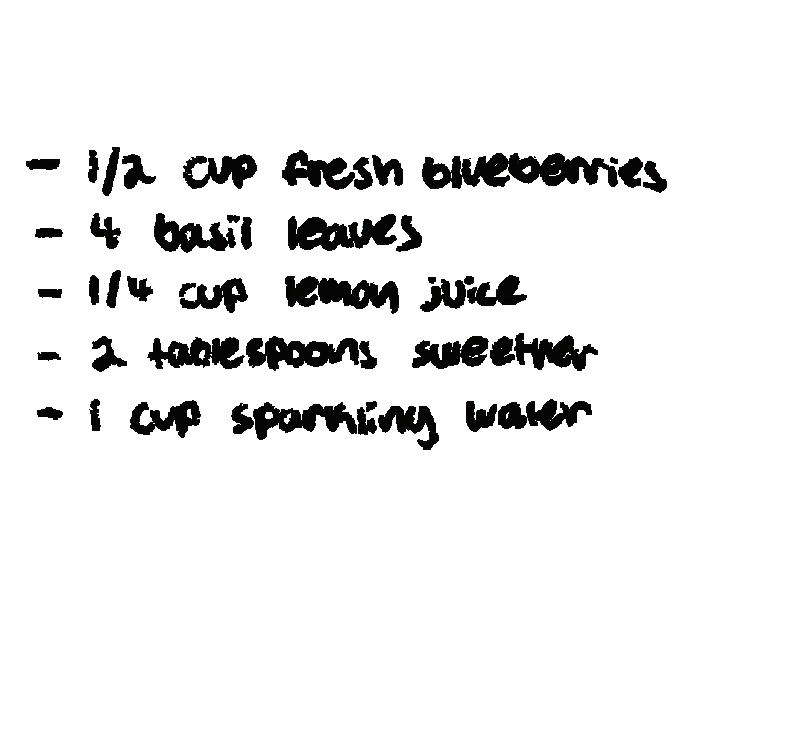 - 1/2 cup fresh blueberries
- 4 basil leaves
- 1/4 cup lemon juice
- 2 tablespoons sweetner
- 1 cup sparkling water